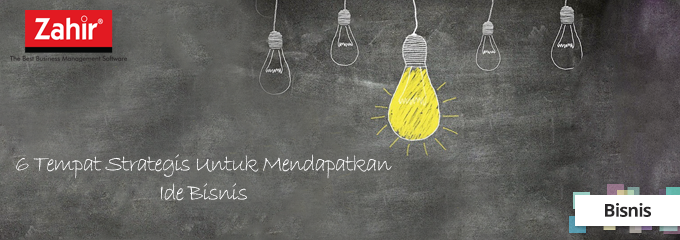 Zahir®
The Best Business Management Software
6 Tempat Strategis Untuk Mendapatkan
Ide Bisnis
Bisnis